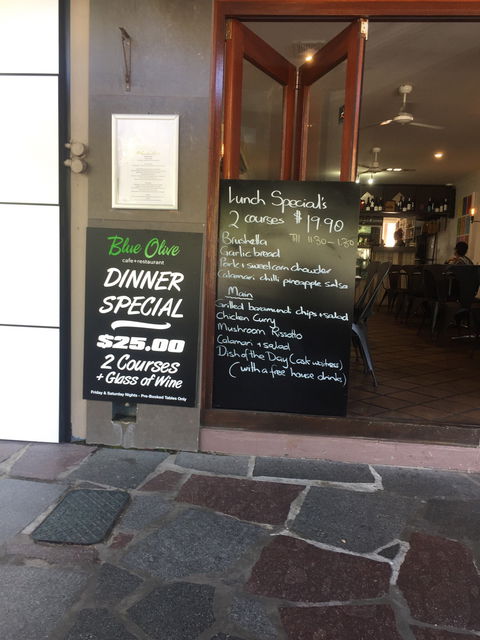 Blue Olive
cafe+restaurant
DINNER
SPECIAL
$25.00
2 Courses
+ Glass of Wine
Friday & Saturday Nights - Pre-Booked Tables Only
Lunch Special's
2 courses $19.90
Brushetta Till 11:30-1:30
Garlic bread
Pork + sweetcorn chowder
Calamari chilli pineapple salsa
Main
Grilled baramundi chips + salad
Chicken Curry
Mushroom Rissotto
Calamari + salad
Dish of the Day (ask waiters)
(with a free house drink)